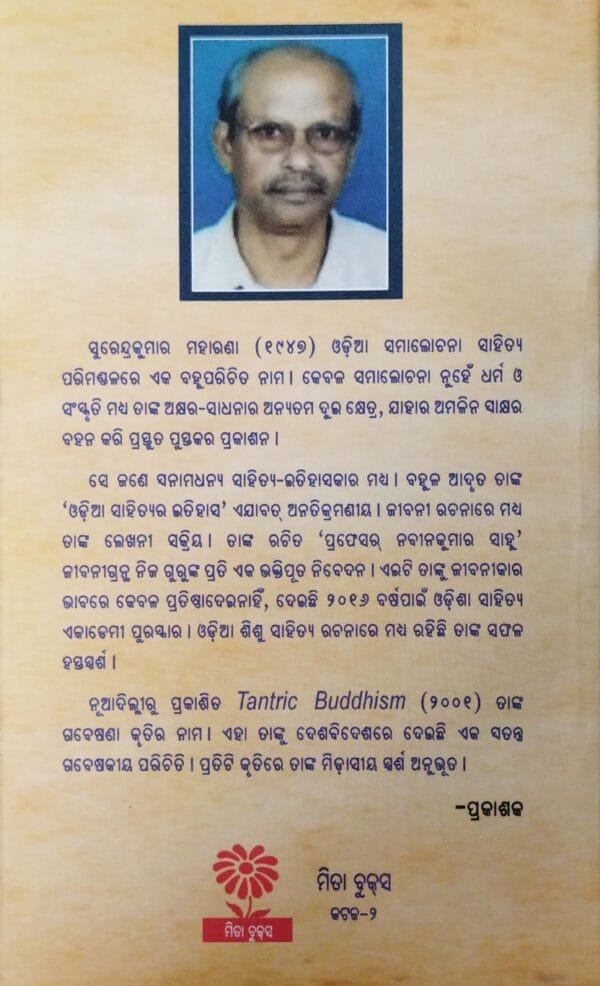 ସୁରେନ୍ଦ୍ରକୁମାର ମହାରଣା (୧୯୪୭) ଓଡ଼ିଆ ସମାଲୋଚନା ସାହିତ୍ୟ
ପରିମଣ୍ଡଳରେ ଏକ ବହୁପରିଚିତ ନାମ । କେବଳ ସମାଲୋଚନା ନୁହେଁ ଧର୍ମ ଓ
ସଂସ୍କୃତି ମଧ୍ୟ ତାଙ୍କ ଅକ୍ଷର-ସାଧନାର ଅନ୍ୟତମ ଦୁଇ କ୍ଷେତ୍ର, ଯାହାର ଅମଳିନ ସାକ୍ଷର
ବହନ କରି ପ୍ରସ୍ତୁତ ପୁସ୍ତକର ପ୍ରକାଶନ ।
ସେ ଜଣେ ସନାମଧନ୍ୟ ସାହିତ୍ୟ-ଇତିହାସକାର ମଧ୍ୟ । ବହୁଳ ଆଦୃତ ତାଙ୍କ
‘ଓଡ଼ିଆ ସାହିତ୍ୟର ଇତିହାସ’ ଏଯାବତ୍ ଅନତିକ୍ରମଣୀୟ । ଜୀବନୀ ରଚନାରେ ମଧ୍ୟ
ତାଙ୍କ ଲେଖନୀ ସକ୍ରିୟ । ତାଙ୍କ ରଚିତ ‘ପ୍ରଫେସର୍ ନବୀନକୁମାର ସାହୁ’
ଜୀବନୀଗ୍ରନ୍ଥ ନିଜ ଗୁରୁଙ୍କ ପ୍ରତି ଏକ ଭକ୍ତିପୂତ ନିବେଦନ । ଏଇଟି ତାଙ୍କୁ ଜୀବନୀକାର
ଭାବରେ କେବଳ ପ୍ରତିଷ୍ଠାଦେଇନାହିଁ, ଦେଇଛି ୨୦୧୬ ବର୍ଷପାଇଁ ଓଡ଼ିଶା ସାହିତ୍ୟ
ଏକାଡେମୀ ପୁରସ୍କାର । ଓଡ଼ିଆ ଶିଶୁ ସାହିତ୍ୟ ରଚନାରେ ମଧ୍ୟ ରହିଛି ତାଙ୍କ ସଫଳ
ହସ୍ତସ୍ପର୍ଶ ।
ନୂଆଦିଲ୍ଲୀରୁ ପ୍ରକାଶିତ Tantric Buddhism (୨୦୦୧) ତାଙ୍କ
ଗବେଷଣା କୃତିର ନାମ । ଏହା ତାଙ୍କୁ ଦେଶବିଦେଶରେ ଦେଇଛି ଏକ ସତନ୍ତ୍ର
ଗବେଷକୀୟ ପରିଚିତି । ପ୍ରତିଟି କୃତିରେ ତାଙ୍କ ମିଡ଼ାସୀୟ ସ୍ପର୍ଶ ଅନୁଭୂତ ।
-ପ୍ରକାଶକ
ମିତା ବୁକ୍‌ସ
କଟକ-୨
ମିତା ବୁକ୍‌ସ